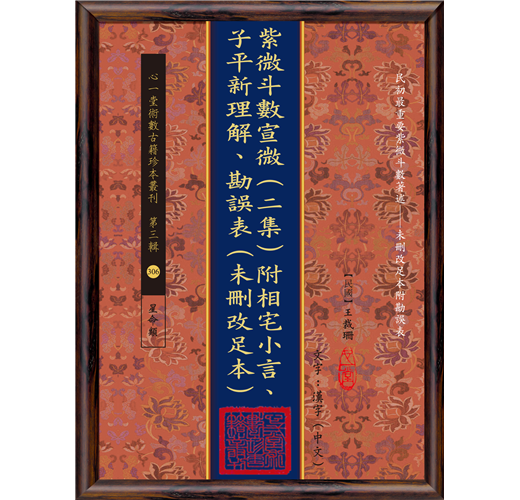 民初最重要紫微斗數著述──未刪改足本附勘誤表
【民國】王裁珊
文字：漢字（中文）
紫微斗數宣微（二集）附相宅小言、
子平新理解、勘誤表（未刪改足本）
心一堂術數古籍珍本叢刊 第三輯
306
星命類